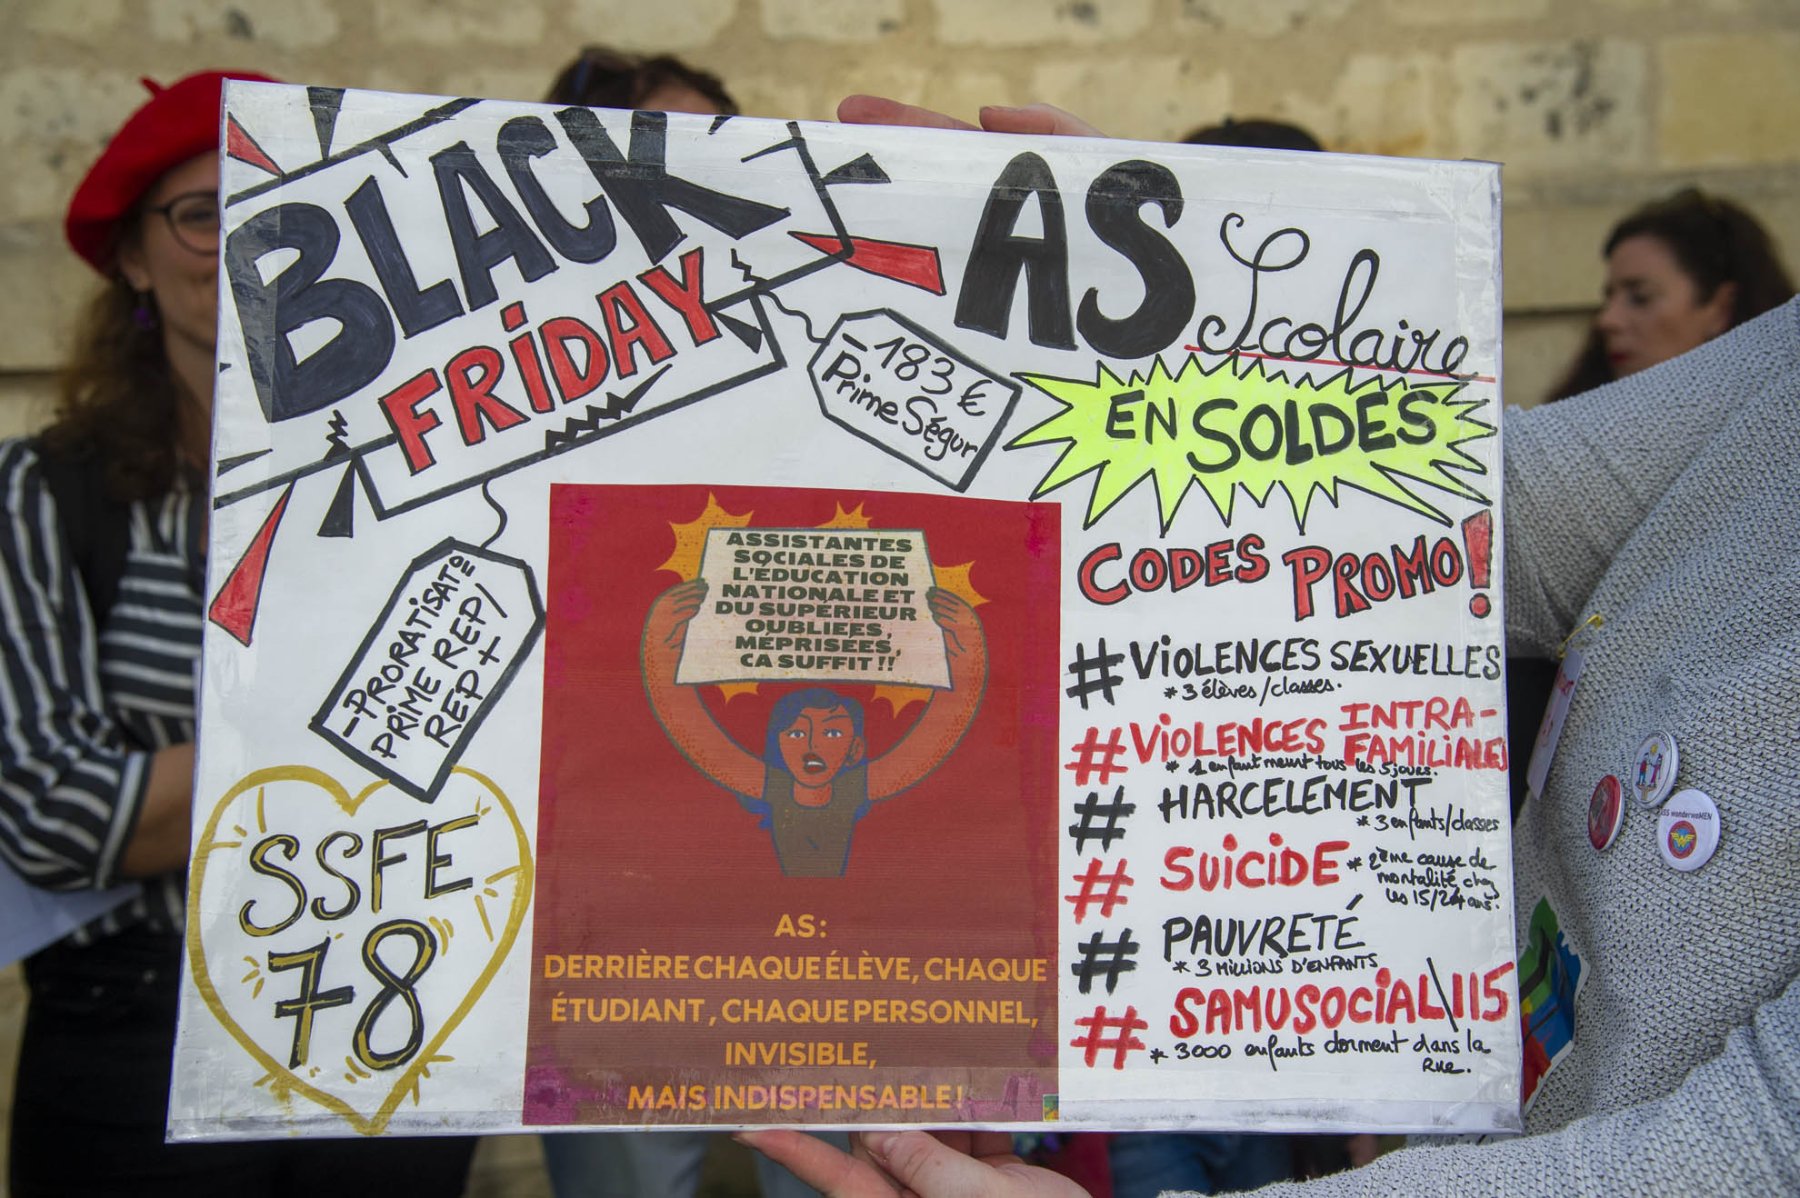 BLACK
FRIDAY
AS
Scolaire
EN SOLDES
- 183 €
Prime Ségur
- PRORATISATº
PRIME REP/
REP +
ASSISTANTES
SOCIALES DE
L'ÉDUCATION
NATIONALE ET
DU SUPÉRIEUR
OUBLIÉES,
MÉPRISÉES,
CA SUFFIT !!
AS:
DERRIÈRE CHAQUE ÉLÈVE, CHAQUE
ÉTUDIANT, CHAQUE PERSONNEL,
INVISIBLE,
MAIS INDISPENSABLE!
SSFE
78
CODES PROMO!
# VIOLENCES SEXUELLES
* 3 élèves/classes.
# VIOLENCES INTRA-
FAMILIALES
* 1 enfant meurt tous les 5 jours.
# HARCELEMENT
* 3 enfants/classes
# SUICIDE * 2ème cause de
mortalité chez
les 15/24 ans.
# PAUVRETÉ
* 3 MILLIONS D'ENFANTS
# SAMUSOCIAL\115
* 3000 enfants dorment dans la
Rue.
wonderwoMEN